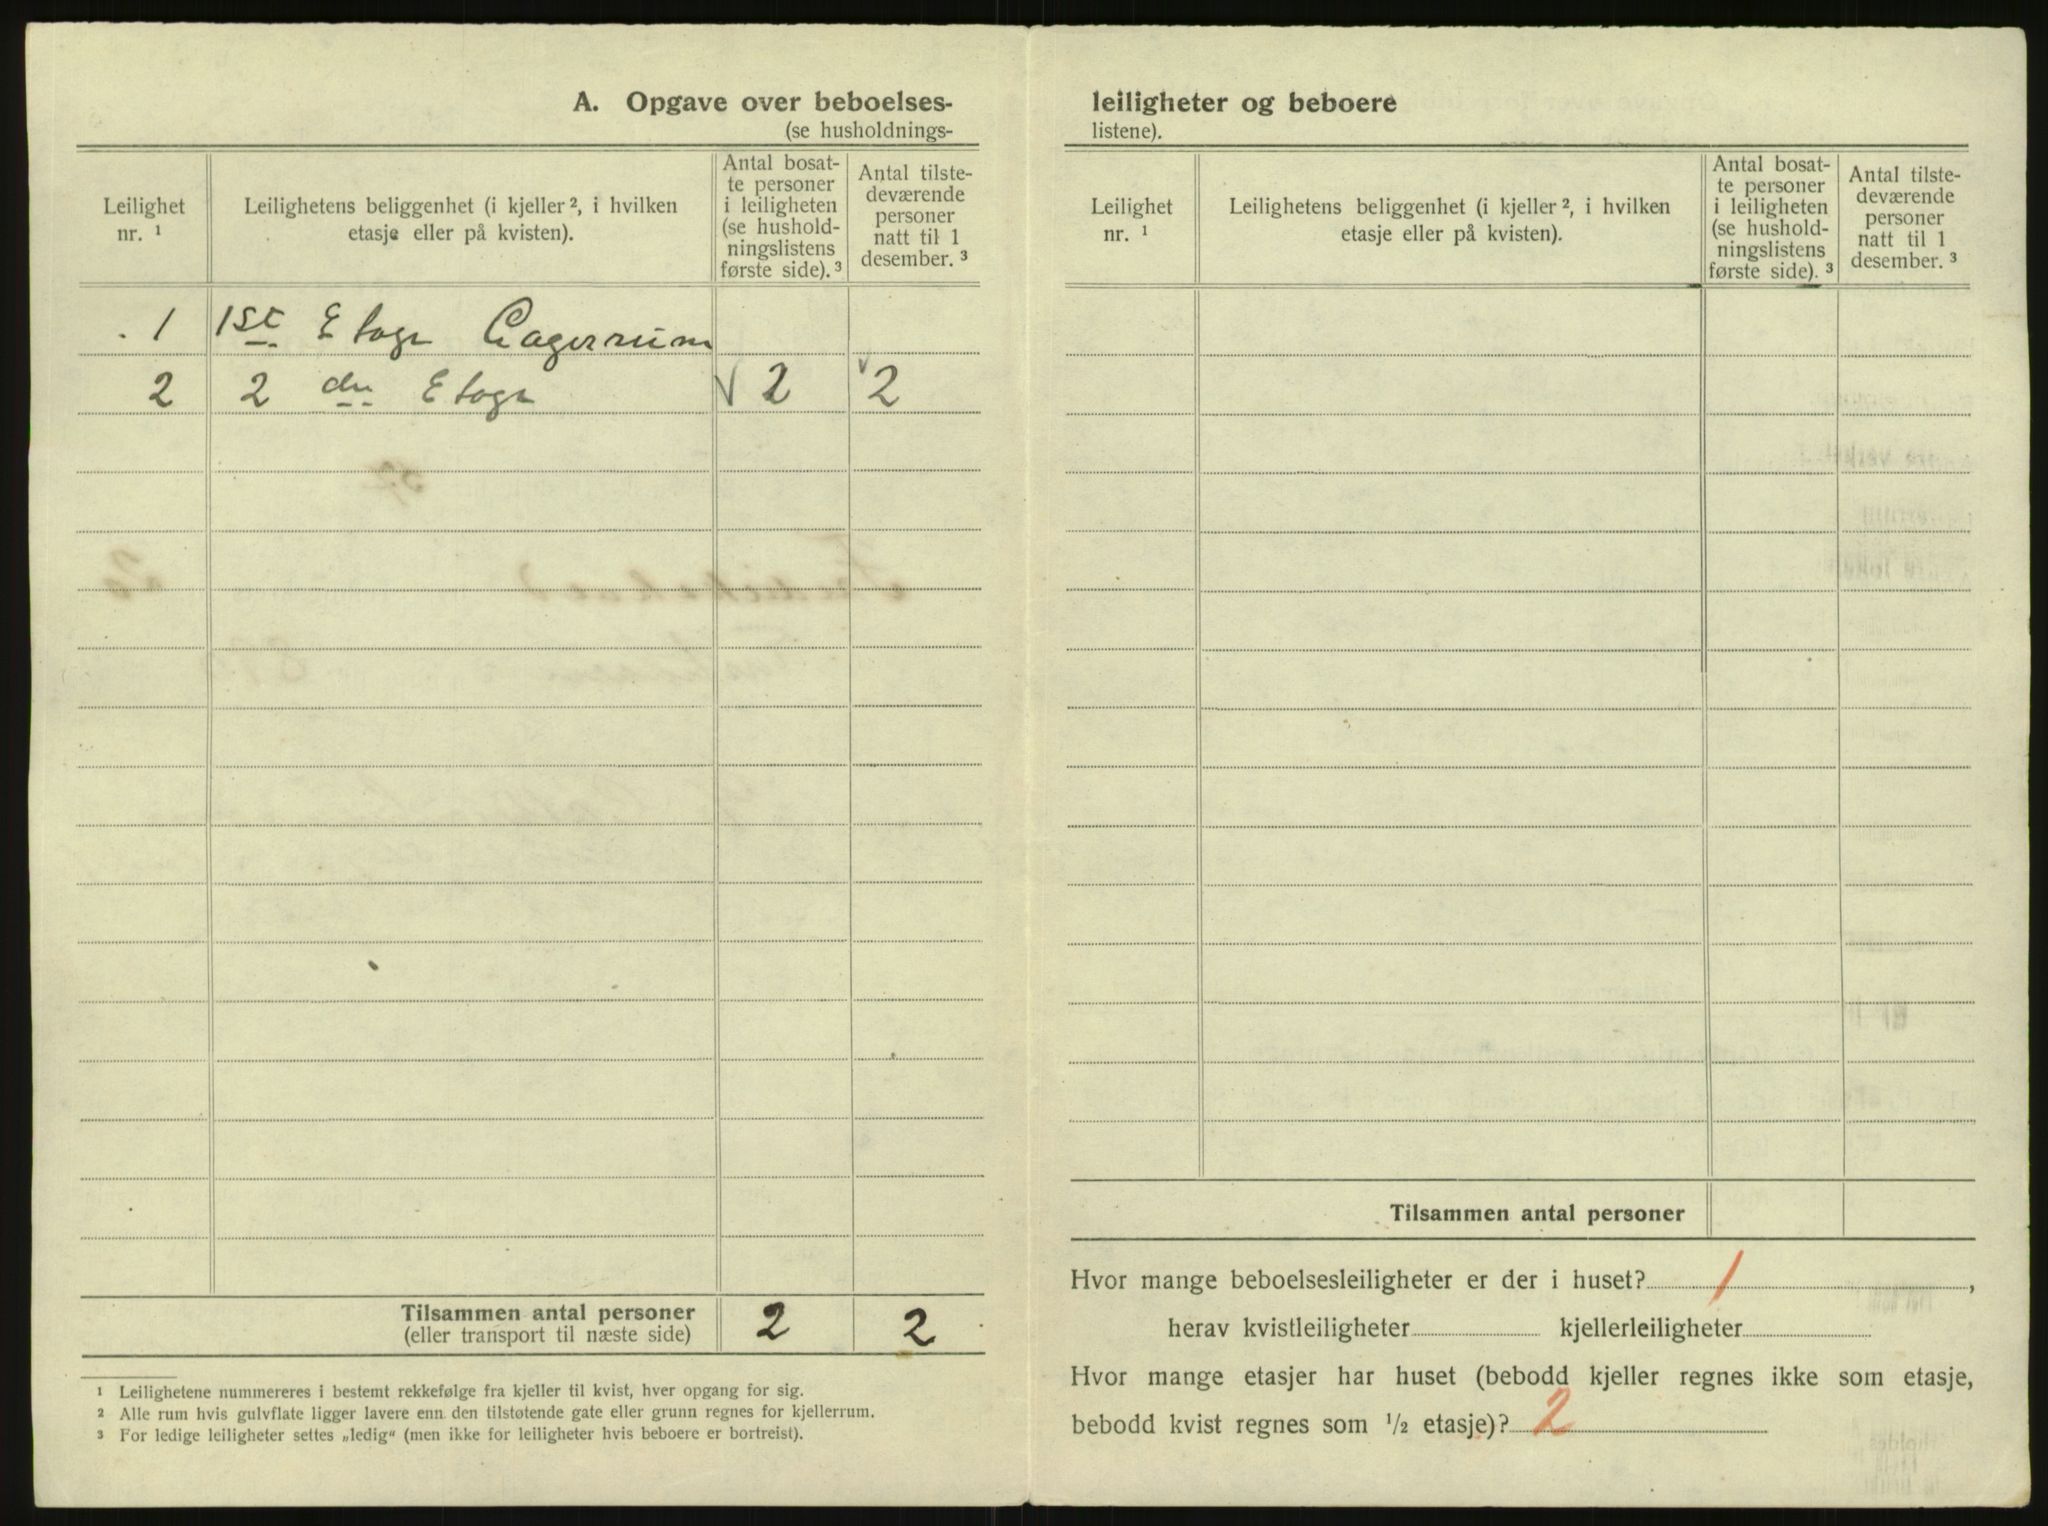 A. Opgave over beboelses-
(se husholdnings-
Leilighet
nr. ¹
Leilighetens beliggenhet (i kjeller ², i hvilken
etasje eller på kvisten).
Antal bosat-
te personer
i leiligheten
(se hushold-
ningslistens
første side). ³
Antal tilste-
deværende
personer
natt til 1
desember. ³
1 1st Etage Lagerrum
2 2 den Etage √ 2 √ 2
Tilsammen antal personer
(eller transport til næste side)
2 2
¹ Leilighetene nummereres i bestemt rekkefølge fra kjeller til kvist, hver opgang for sig.
² Alle rum hvis gulvflate ligger lavere enn den tilstøtende gate eller grunn regnes for kjellerrum.
³ For ledige leiligheter settes „ledig“ (men ikke for leiligheter hvis beboere er bortreist).
leiligheter og beboere
listene).
Leilighet
nr. ¹
Leilighetens beliggenhet (i kjeller ², i hvilken
etasje eller på kvisten).
Antal bosat-
te personer
i leiligheten
(se hushold-
ningslistens
første side). ³
Antal tilste-
deværende
personer
natt til 1
desember. ³
Tilsammen antal personer
Hvor mange beboelsesleiligheter er der i huset? 1,
herav kvistleiligheter kjellerleiligheter
Hvor mange etasjer har huset (bebodd kjeller regnes ikke som etasje,
bebodd kvist regnes som ½ etasje)? 2